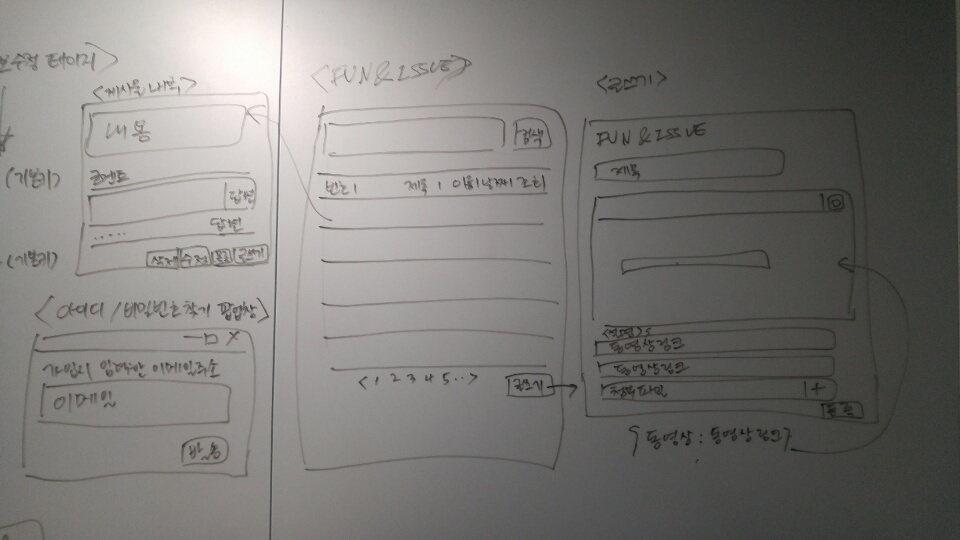 수정 페이지>
<게시물 내용>
내용
코멘트
답변
..... 답변
삭제 수정 목록 글쓰기
<아이디 / 비밀번호찾기 팝업창>
— □ X
가입시 입력한 이메일주소
이메일
발송
<FUN & ISSUE>
검색
번호 | 제목 | 아이디 날짜 조회
< 1 2 3 4 5 .. >
글쓰기
<글쓰기>
FUN & ISSUE
제목
동영상링크
동영상링크
첨부파일 | +
등록
동영상 : 동영상링크